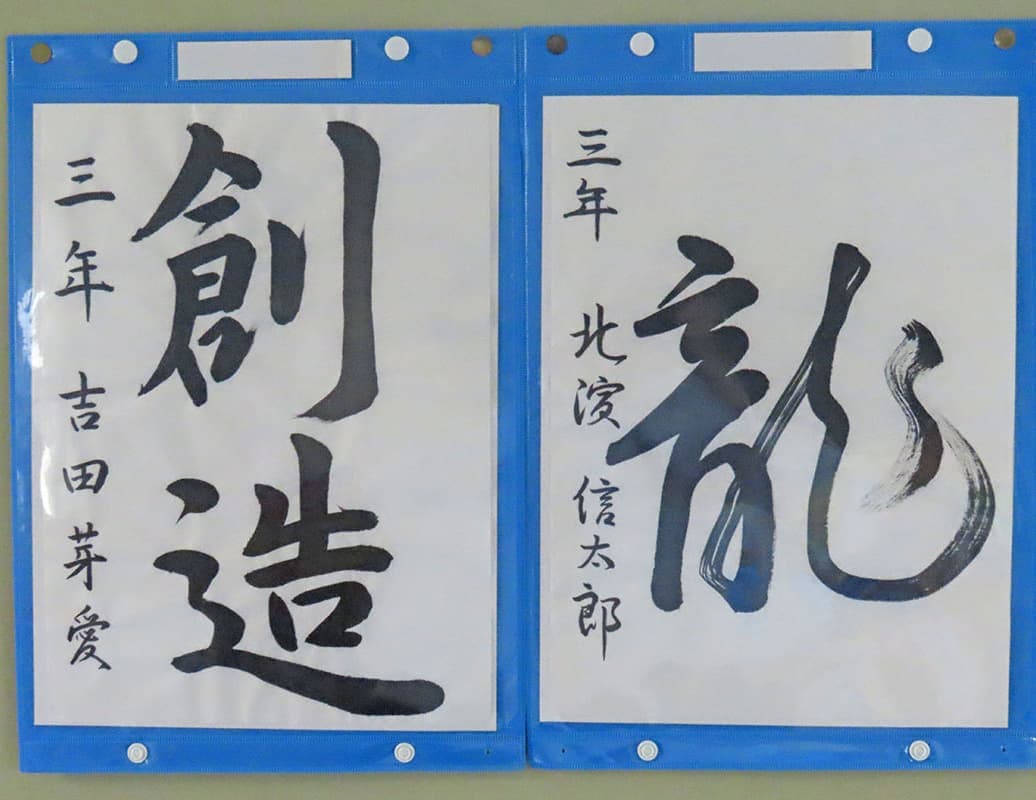 創造
三年 吉田芽愛
龍
三年 北濵 信太郎